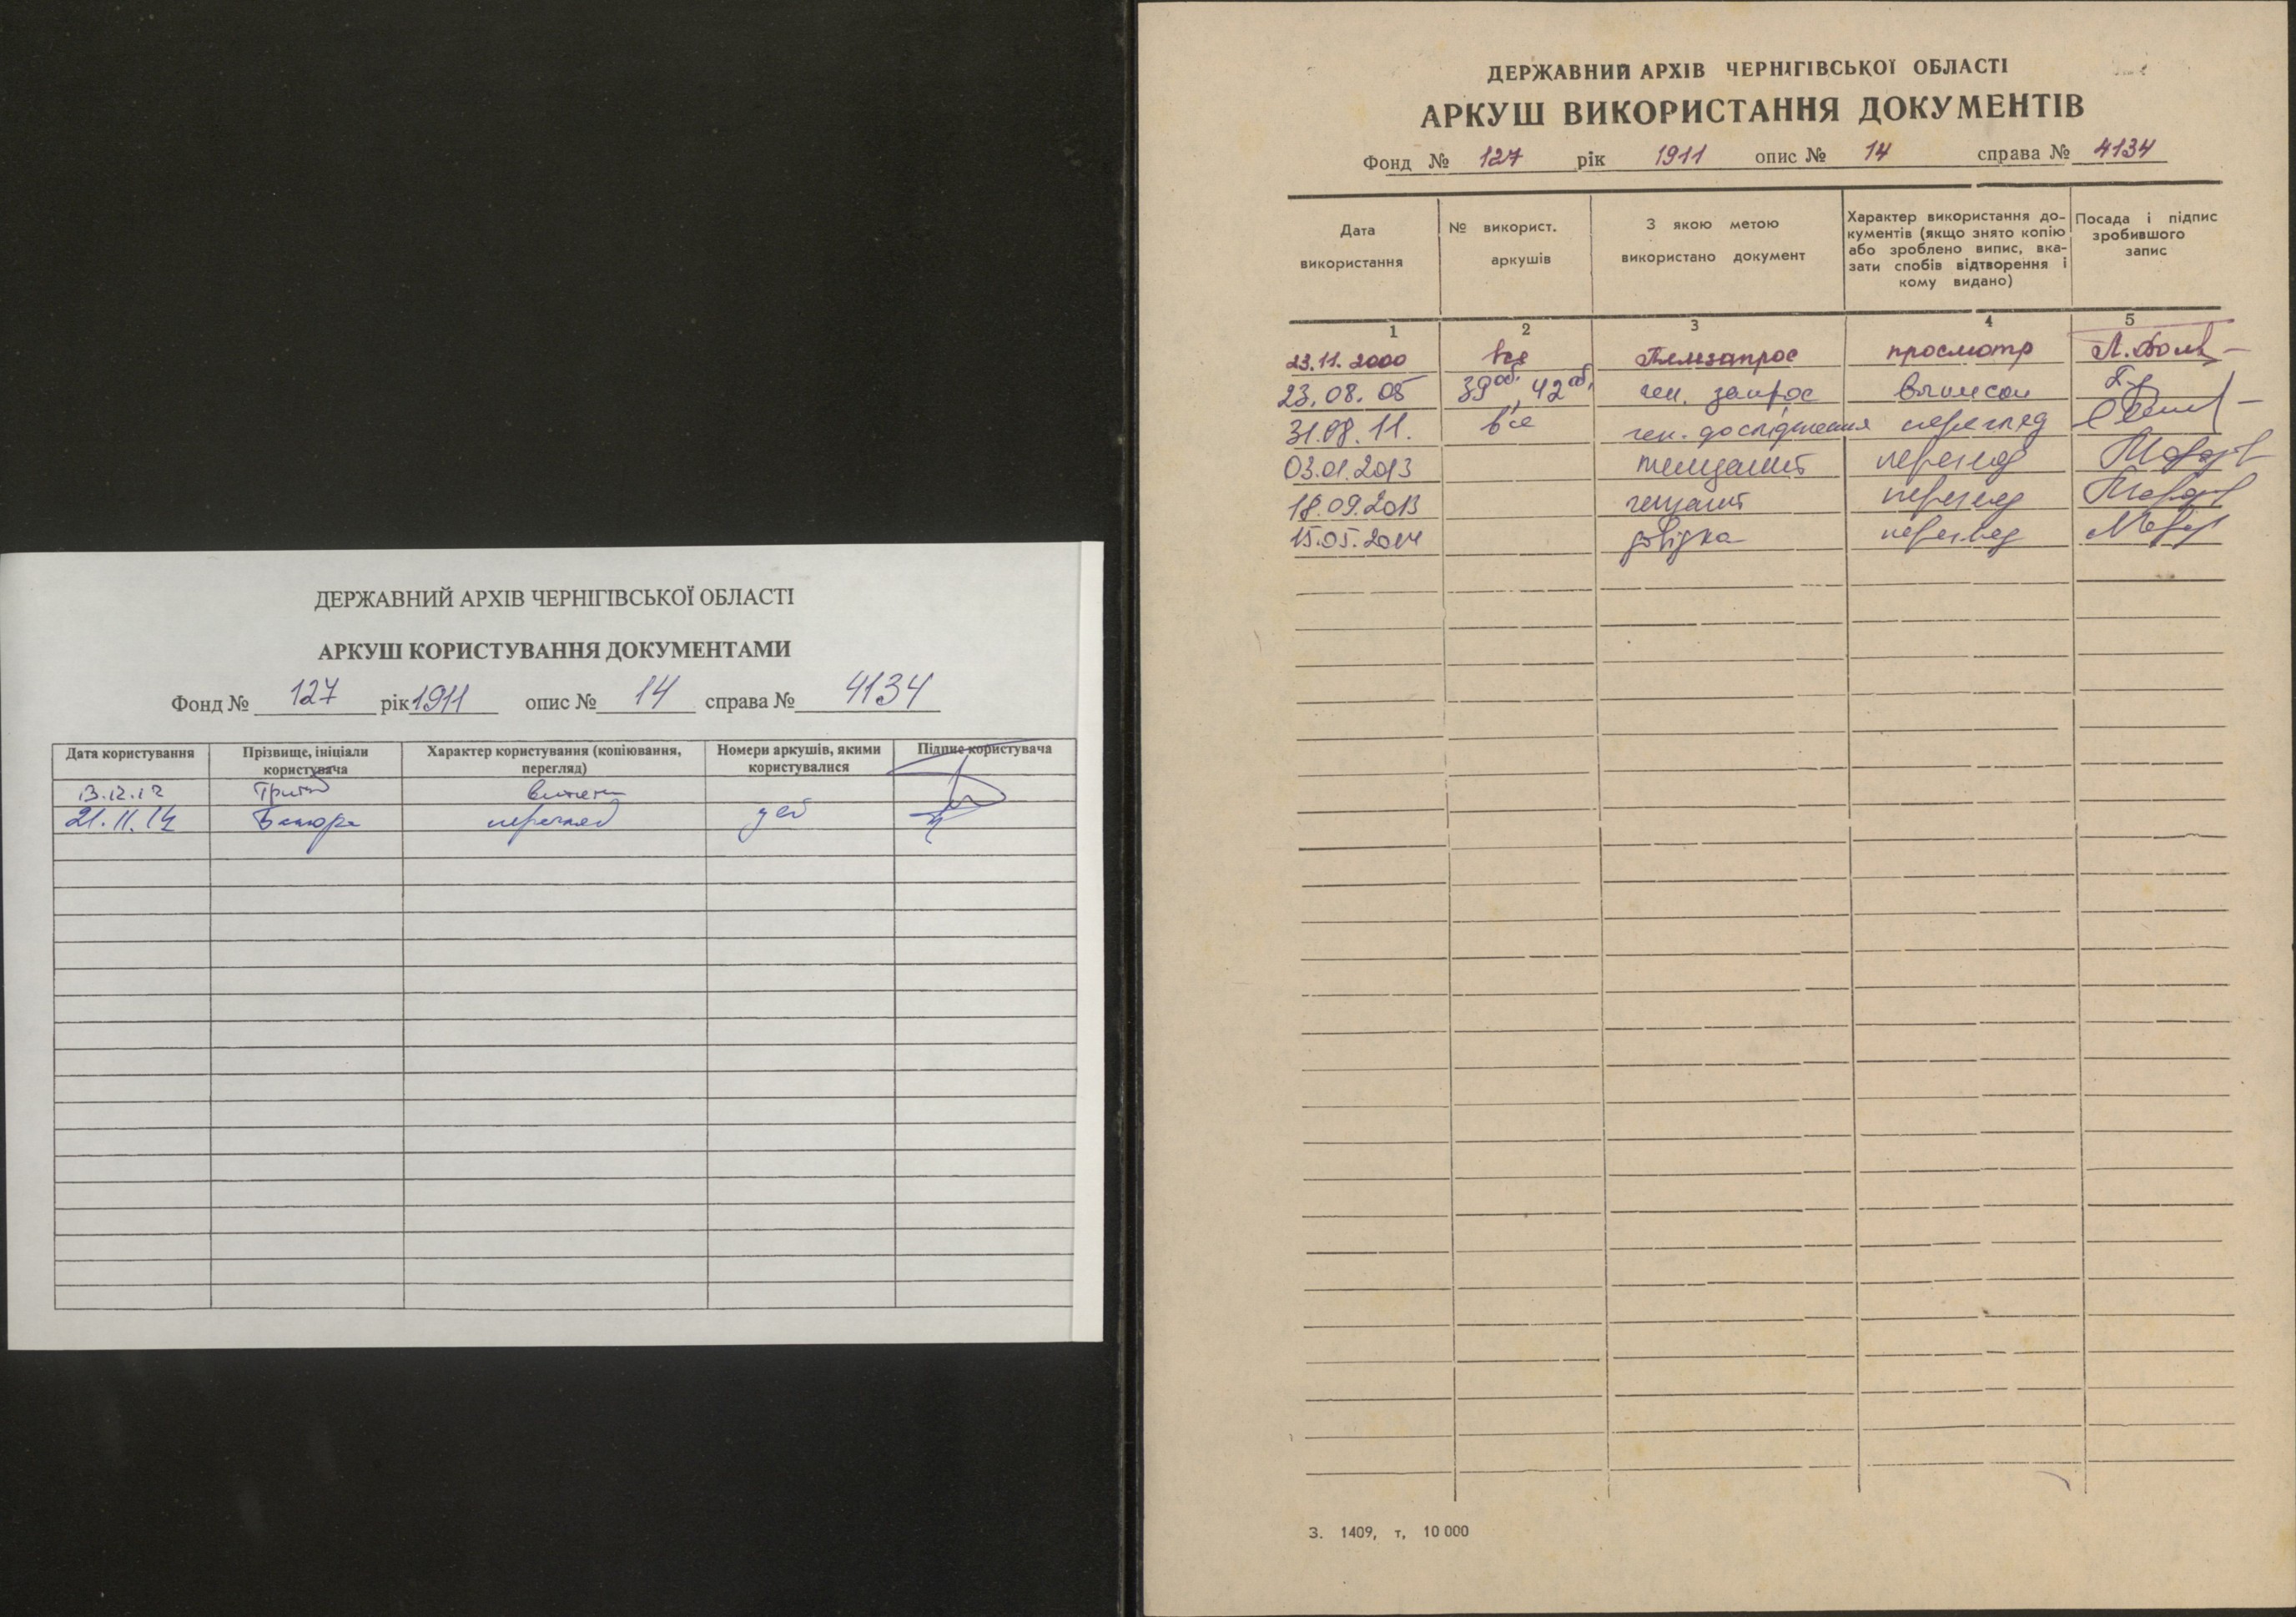 ДЕРЖАВНИЙ АРХІВ ЧЕРНІГІВСЬКОЇ ОБЛАСТІ
АРКУШ КОРИСТУВАННЯ ДОКУМЕНТАМИ
Фонд № 127 рік 1911 опис № 14 справа № 4134
Дата користування Прізвище, ініціали користувача Характер користування (копіювання, перегляд) Номери аркушів, якими користувалися Підпис користувача
13.12.12
21.11.14 перегляд
ДЕРЖАВНИЙ АРХІВ ЧЕРНІГІВСЬКОЇ ОБЛАСТІ
АРКУШ ВИКОРИСТАННЯ ДОКУМЕНТІВ
Фонд № 127 рік 1911 опис № 14 справа № 4134
Дата використання
№ використ. аркушів
З якою метою використано документ
Характер використання до-
кументів (якщо знято копію
або зроблено випис, вка-
зати спобів відтворення і
кому видано)
Посада і підпис
зробившого
запис
1 2 3 4 5
23.11.2000 все просмотр
23.08.05 39об, 42об, ген. запрос
31.08.11. все ген. дослідження перегляд
03.01.2013 перегляд
18.09.2013 перегляд
15.05.2014 довідка перегляд
З. 1409, т, 10 000